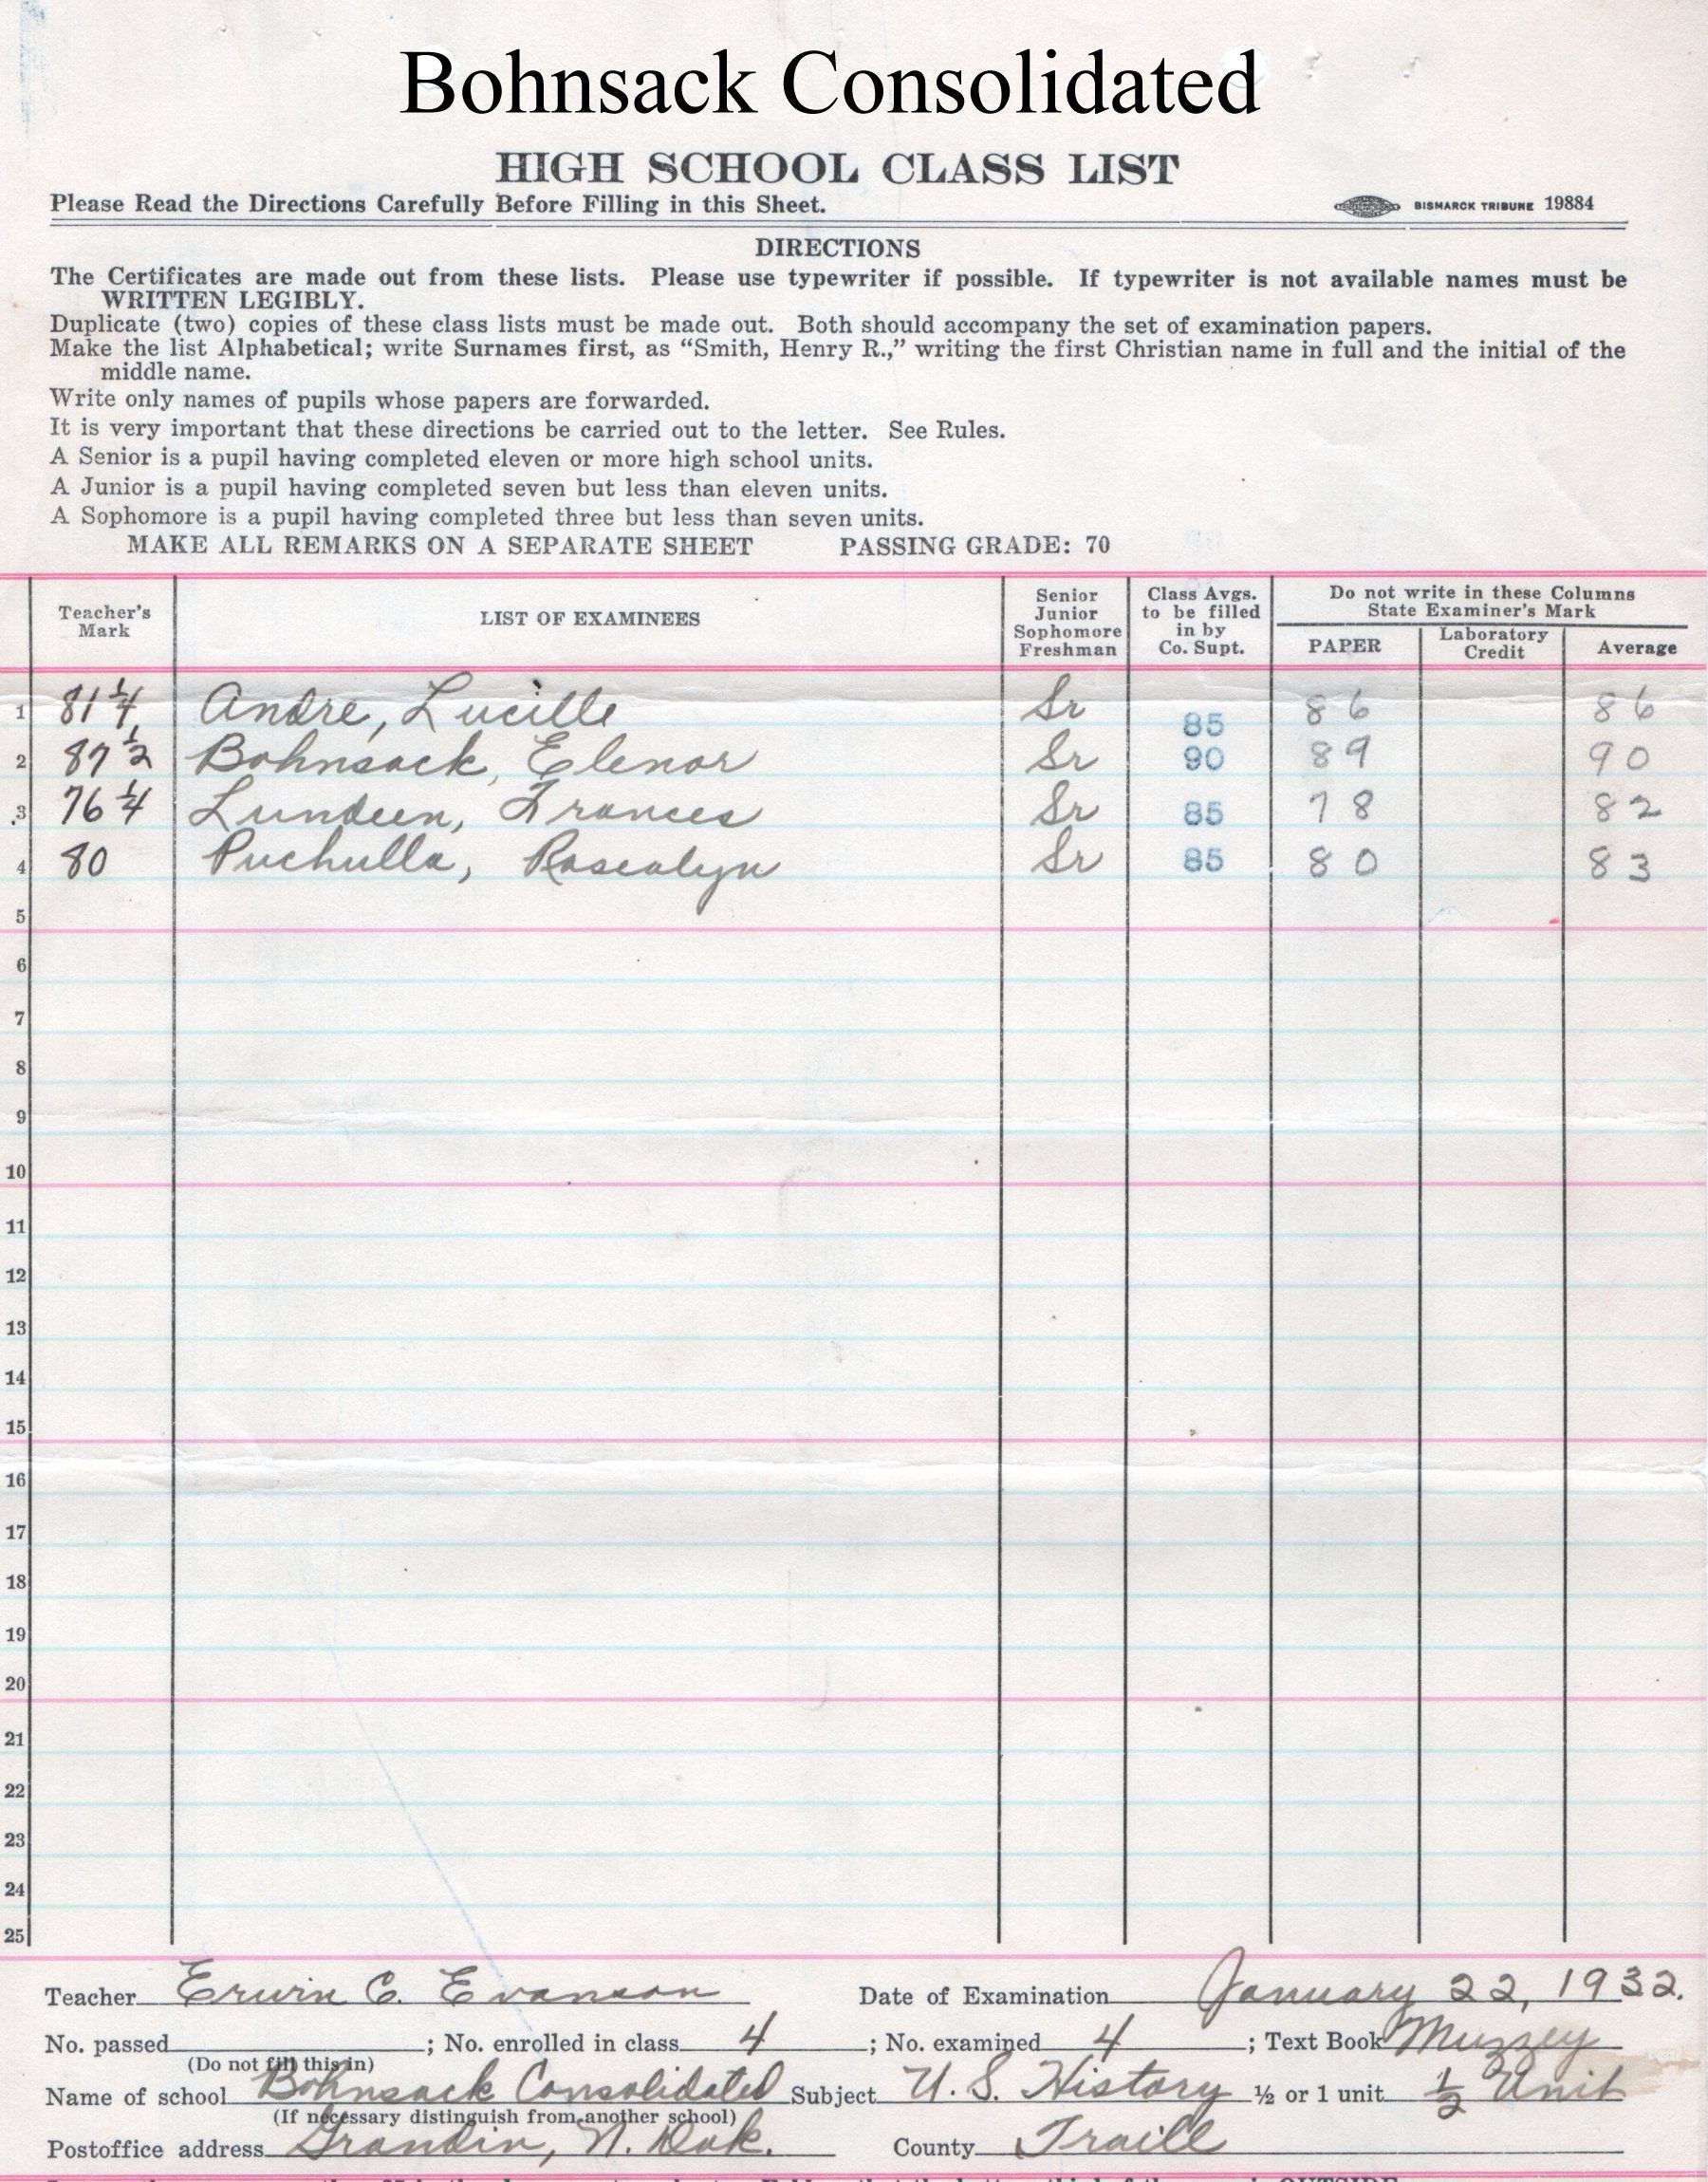 Bohnsack Consolidated
HIGH SCHOOL CLASS LIST
Please Read the Directions Carefully Before Filling in this Sheet. BISMARCK TRIBUNE 19884
DIRECTIONS
The Certificates are made out from these lists. Please use typewriter if possible. If typewriter is not available names must be
WRITTEN LEGIBLY.
Duplicate (two) copies of these class lists must be made out. Both should accompany the set of examination papers.
Make the list Alphabetical; write Surnames first, as “Smith, Henry R.,” writing the first Christian name in full and the initial of the
middle name.
Write only names of pupils whose papers are forwarded.
It is very important that these directions be carried out to the letter. See Rules.
A Senior is a pupil having completed eleven or more high school units.
A Junior is a pupil having completed seven but less than eleven units.
A Sophomore is a pupil having completed three but less than seven units.
MAKE ALL REMARKS ON A SEPARATE SHEET PASSING GRADE: 70
Teacher's Mark LIST OF EXAMINEES Senior Junior Sophomore Freshman Class Avgs. to be filled in by Co. Supt. Do not write in these Columns State Examiner's Mark PAPER Laboratory Credit Average
1 81 1/4 Andre, Lucille Sr 85 86 86
2 87 1/2 Bohnsack, Elenor Sr 90 89 90
3 76 1/4 Lundeen, Frances Sr 85 78 82
4 80 Puchulla, Rosealyn Sr 85 80 83
5
6
7
8
9
10
11
12
13
14
15
16
17
18
19
20
21
22
23
24
25
Teacher Erwin C. Evanson Date of Examination January 22, 1932.
No. passed ; No. enrolled in class 4 ; No. examined 4 ; Text Book Muzzey
(Do not fill this in)
Name of school Bohnsack Consolidated Subject U. S. History ½ or 1 unit ½ Unit
(If necessary distinguish from another school)
Postoffice address Grandin, N. Dak. County Traill